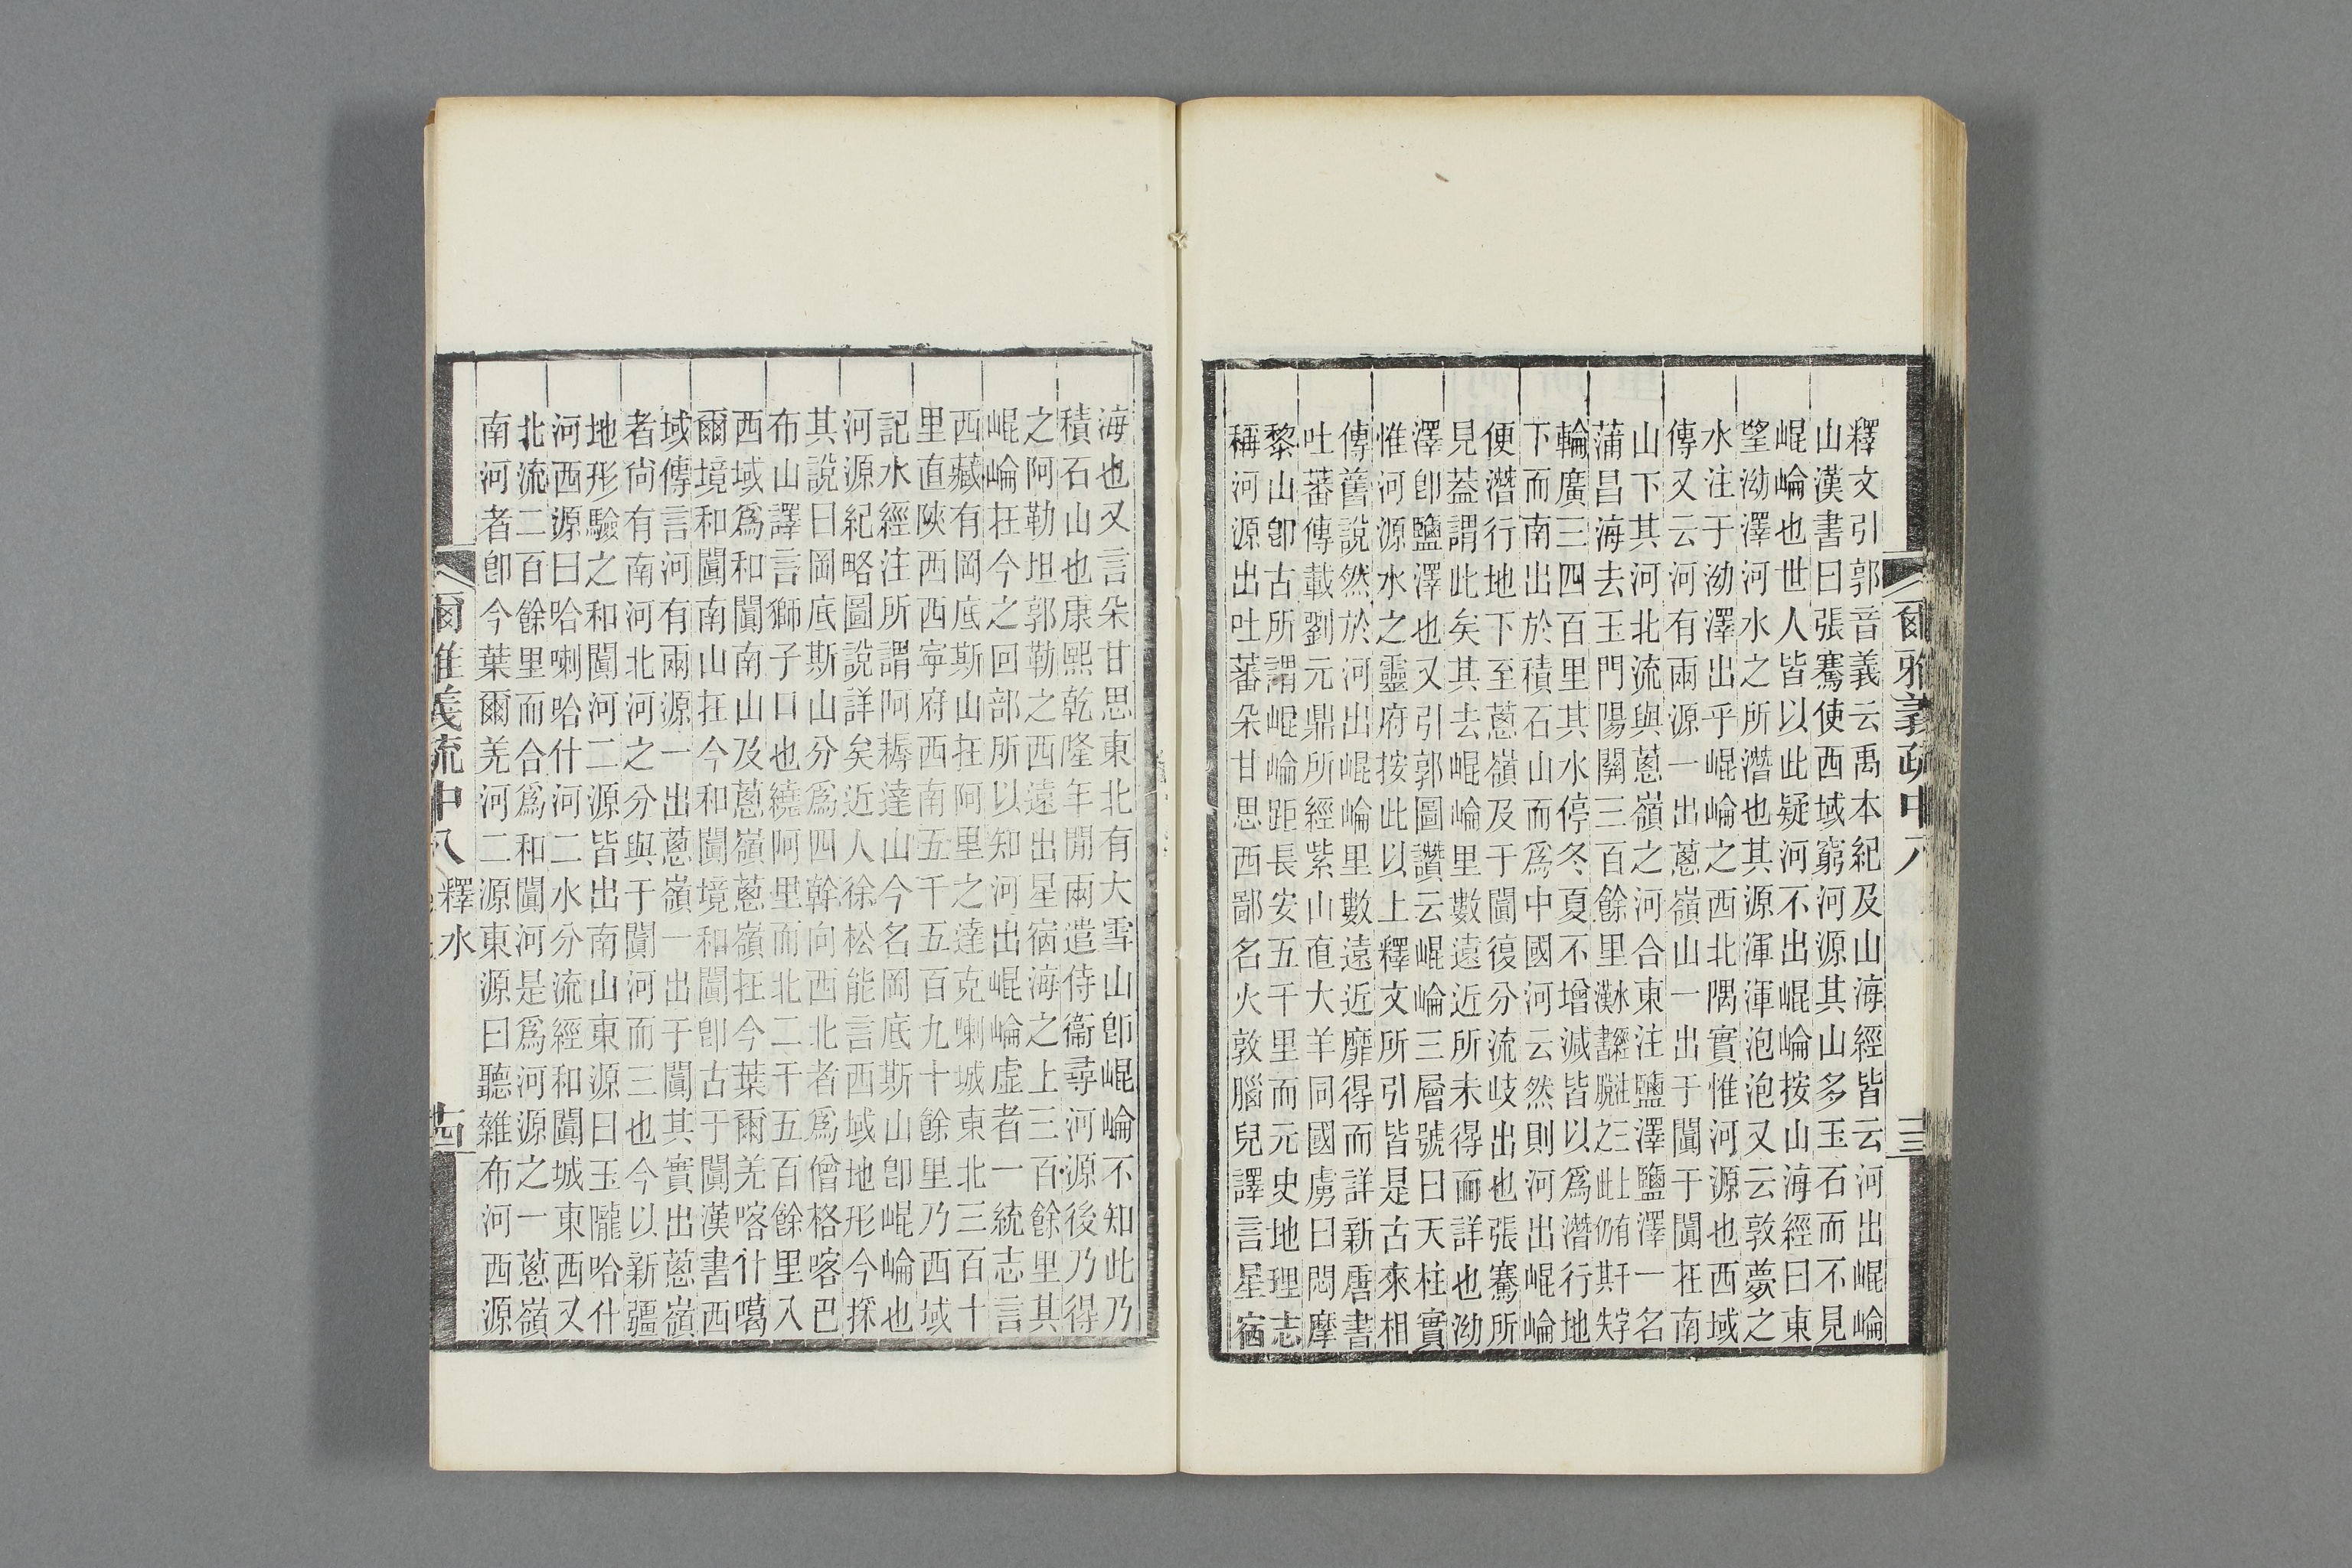 爾雅義疏中八
十三
釋文引郭音義云禹本紀及山海經皆云河出崐崘
山漢書曰張騫使西域窮河源其山多玉石而不見
崐崘也世人皆以此疑河不出崐崘按山海經曰東
望泑澤河水之所潛也其源渾渾泡泡又云敦薨之
水注于泑澤出乎崐崘之西北隅實惟河源也西域
傳又云河有兩源一出蔥嶺山一出于闐于闐在南
山下其河北流與蔥嶺之河合東注鹽澤鹽澤一名
蒲昌海去玉門陽關三百餘里水經注三上有千字漢書脫之此仍斯失
輪廣三四百里其水停冬夏不增減皆以爲潛行地
下而南出於積石山而爲中國河云然則河出崐崘
便潛行地下至蔥嶺及于闐復分流岐出也張騫所
見葢謂此矣其去崐崘里數遠近所未得而詳也泑
澤卽鹽澤也又引郭圖讚云崐崘三層號曰天柱實
惟河源水之靈府按此以上釋文所引皆是古來相
傳舊說然於河出崐崘里數遠近靡得而詳新唐書
吐蕃傳載劉元鼎所經紫山直大羊同國虜曰悶摩
黎山卽古所謂崐崘距長安五千里而元史地理志
稱河源出吐蕃朵甘思西鄙名火敦腦兒譯言星宿
海也又言朵甘思東北有大雪山卽崐崘不知此乃
積石山也康熙乾隆年閒兩遣侍衞尋河源後乃得
之阿勒坦郭勒之西遠出星宿海之上三百餘里其
崐崘在今之回部所以知河出崐崘虛者一統志言
西藏有岡底斯山在阿里之達克喇城東北三百十
里直陝西西寧府西南五千五百九十餘里乃西域
記水經注所謂阿耨達山今名岡底斯山卽崐崘也
河源紀略圖說詳矣近人徐松能言西域地形今採
其說曰岡底斯山分爲四幹向西北者爲僧格喀巴
布山譯言獅子口也繞阿里而北二千五百餘里入
西域爲和闐南山及蔥嶺蔥嶺在今葉爾羌喀什噶
爾境和闐南山在今和闐境和闐卽古于闐漢書西
域傳言河有兩源一出蔥嶺一出于闐其實出蔥嶺
者尙有南河北河之分與于闐河而三也今以新疆
地形驗之和闐河二源皆出南山東源曰玉隴哈什
河西源曰哈喇哈什河二水分流經和闐城東西又
北流二百餘里而合爲和闐河是爲河源之一蔥嶺
南河者卽今葉爾羌河二源東源曰聽雜布河西源
爾雅義疏中八
釋水
十四